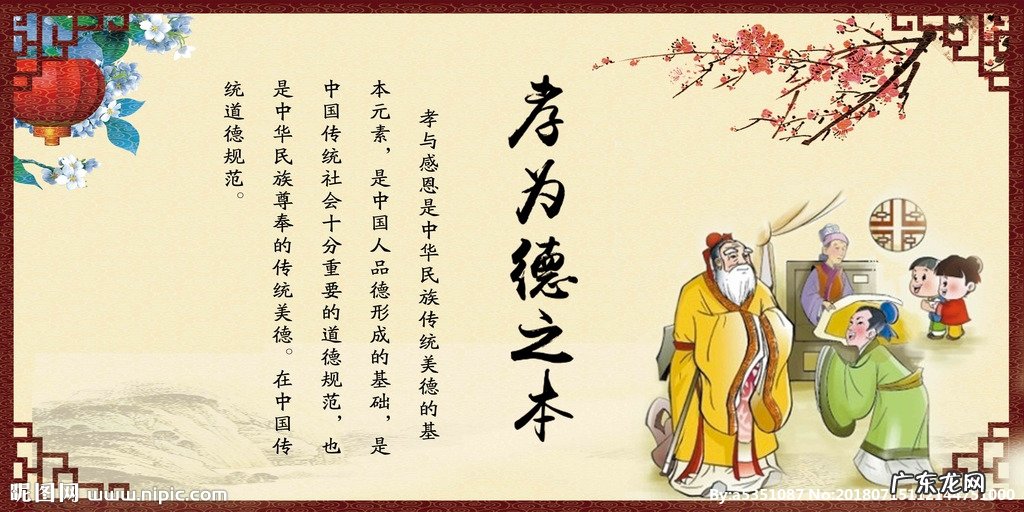 孝为德之本
孝与感恩是中华民族传统美德的基
本元素，是中国人品德形成的基础，是
中国传统社会十分重要的道德规范，也
是中华民族尊奉的传统美德。在中国传
统道德规范。
昵图网 www.nipic.com
广东龙网